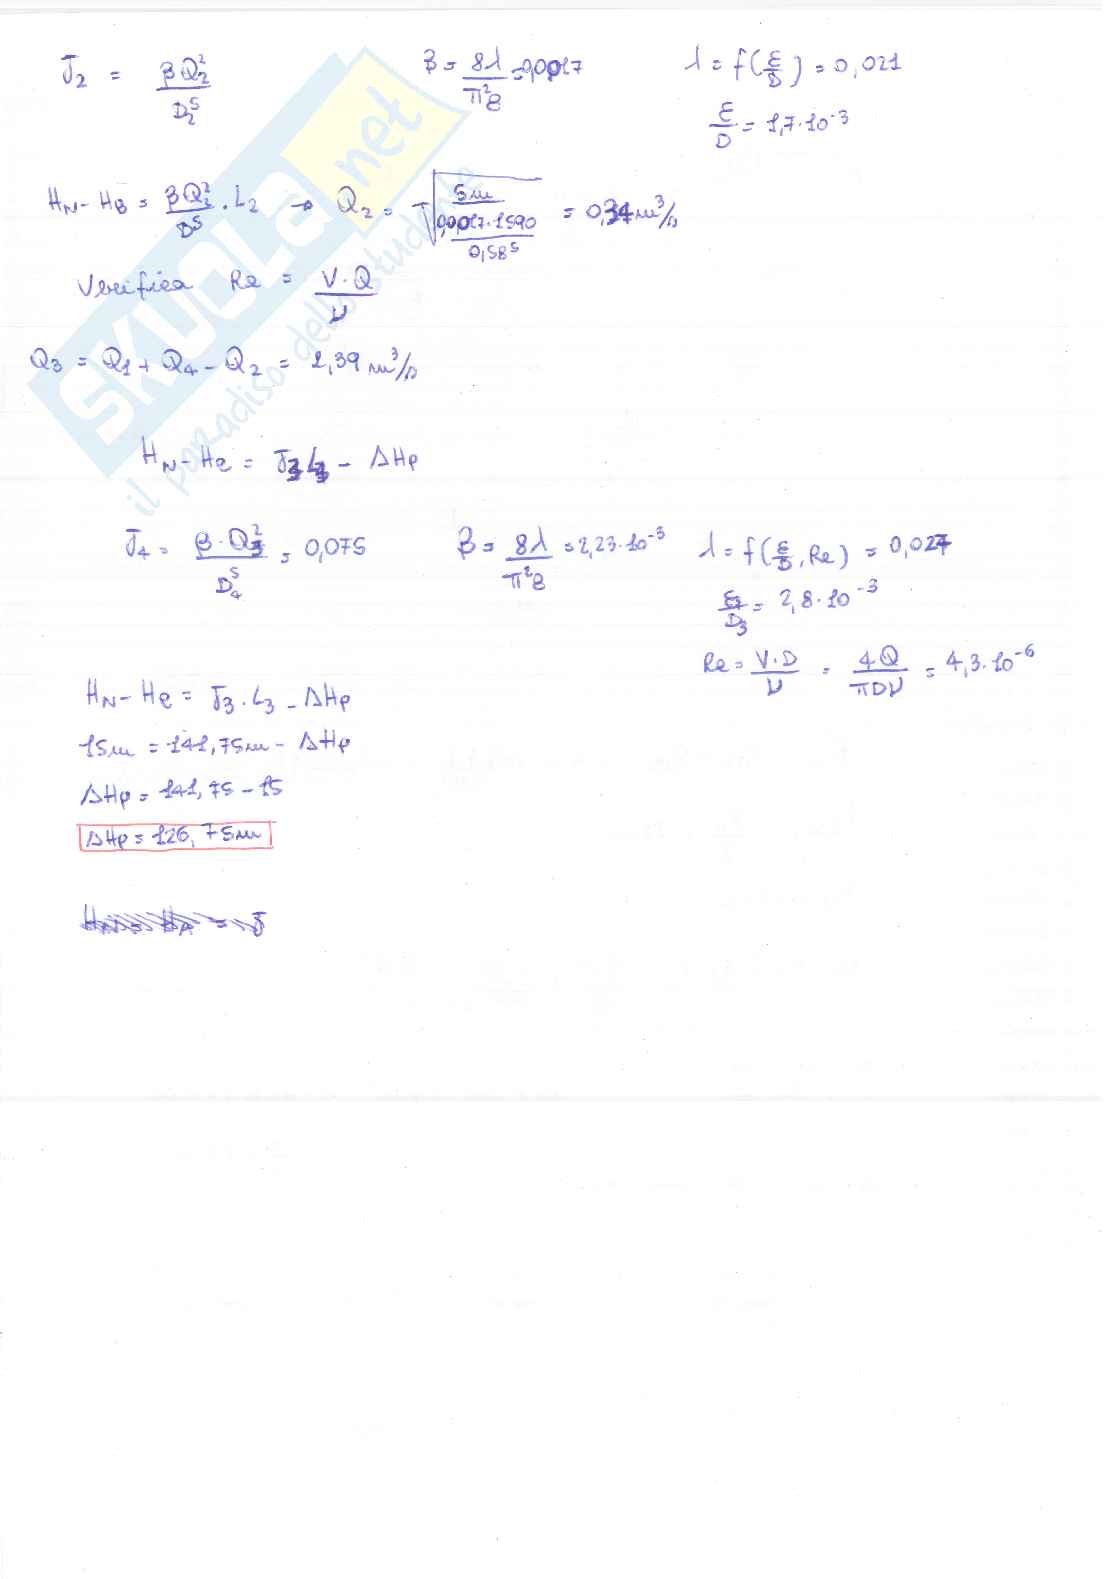 J₂ = βQ₂²/D₂⁵   β = 8λ/π²g = 0,0017   λ = f(ε/D) = 0,021
ε/D = 1,7·10⁻³
H_N - H_B = βQ₂²/D⁵ · L₂ → Q₂ = √(5m/(0,0017·1590/0,58⁵)) = 0,34 m³/s
Verifica Re = V·Q/ν
Q₃ = Q₁ + Q₄ - Q₂ = 1,39 m³/s
H_N - H_C = J₃L₃ - ΔHp
J₄ = β·Q₃²/D₄⁵ = 0,075   β = 8λ/π²g = 2,23·10⁻³   λ = f(ε/D, Re) = 0,027
ε/D₃ = 2,8·10⁻³
Re = V·D/ν = 4Q/πDν = 4,3·10⁻⁶
H_N - H_C = J₃·L₃ - ΔHp
15m = 141,75m - ΔHp
ΔHp = 141,75 - 15
ΔHp = 126,75m
SKUOLA.net
il paradiso dello studente